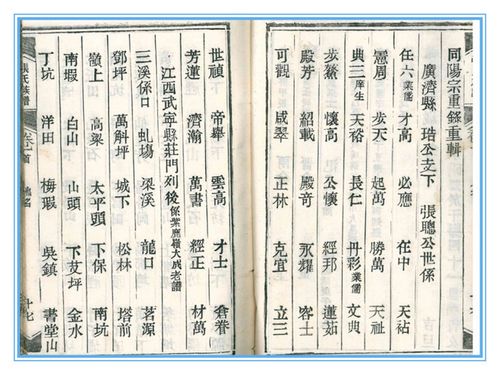 同陽宗重鋟重輯
廣濟縣 公支下 張聰公世係
任六業儒 才高 必應 在中 天祜
憲周 步天 起萬 勝萬 天祉
典三庠生 天裕 長仁 丹彩業儒 文典
步蓁 懷高 公懷 經邦 蓮茹
殿芳 紹載 殿奇 永耀 客士
可觀 咸翠 正林 克宜 立三
世禎 帝舉 雲高 才士 倉眷
芳蓮 濟瀚 萬書 經正 材萬
江西武寧縣莊門列後係葉鹿嶺大成老譜
三溪係口 虬塲 梁溪 龍口 茗源
鄧坪 萬斛坪 城下 松林 塔前
嶺上 高梁 太平頭 下保 南坑
南嘏 白山 山頭 下坪 金水
丁坑 洋田 梅瑕 吳鎮 書堂山
張氏族譜 首 名 十七